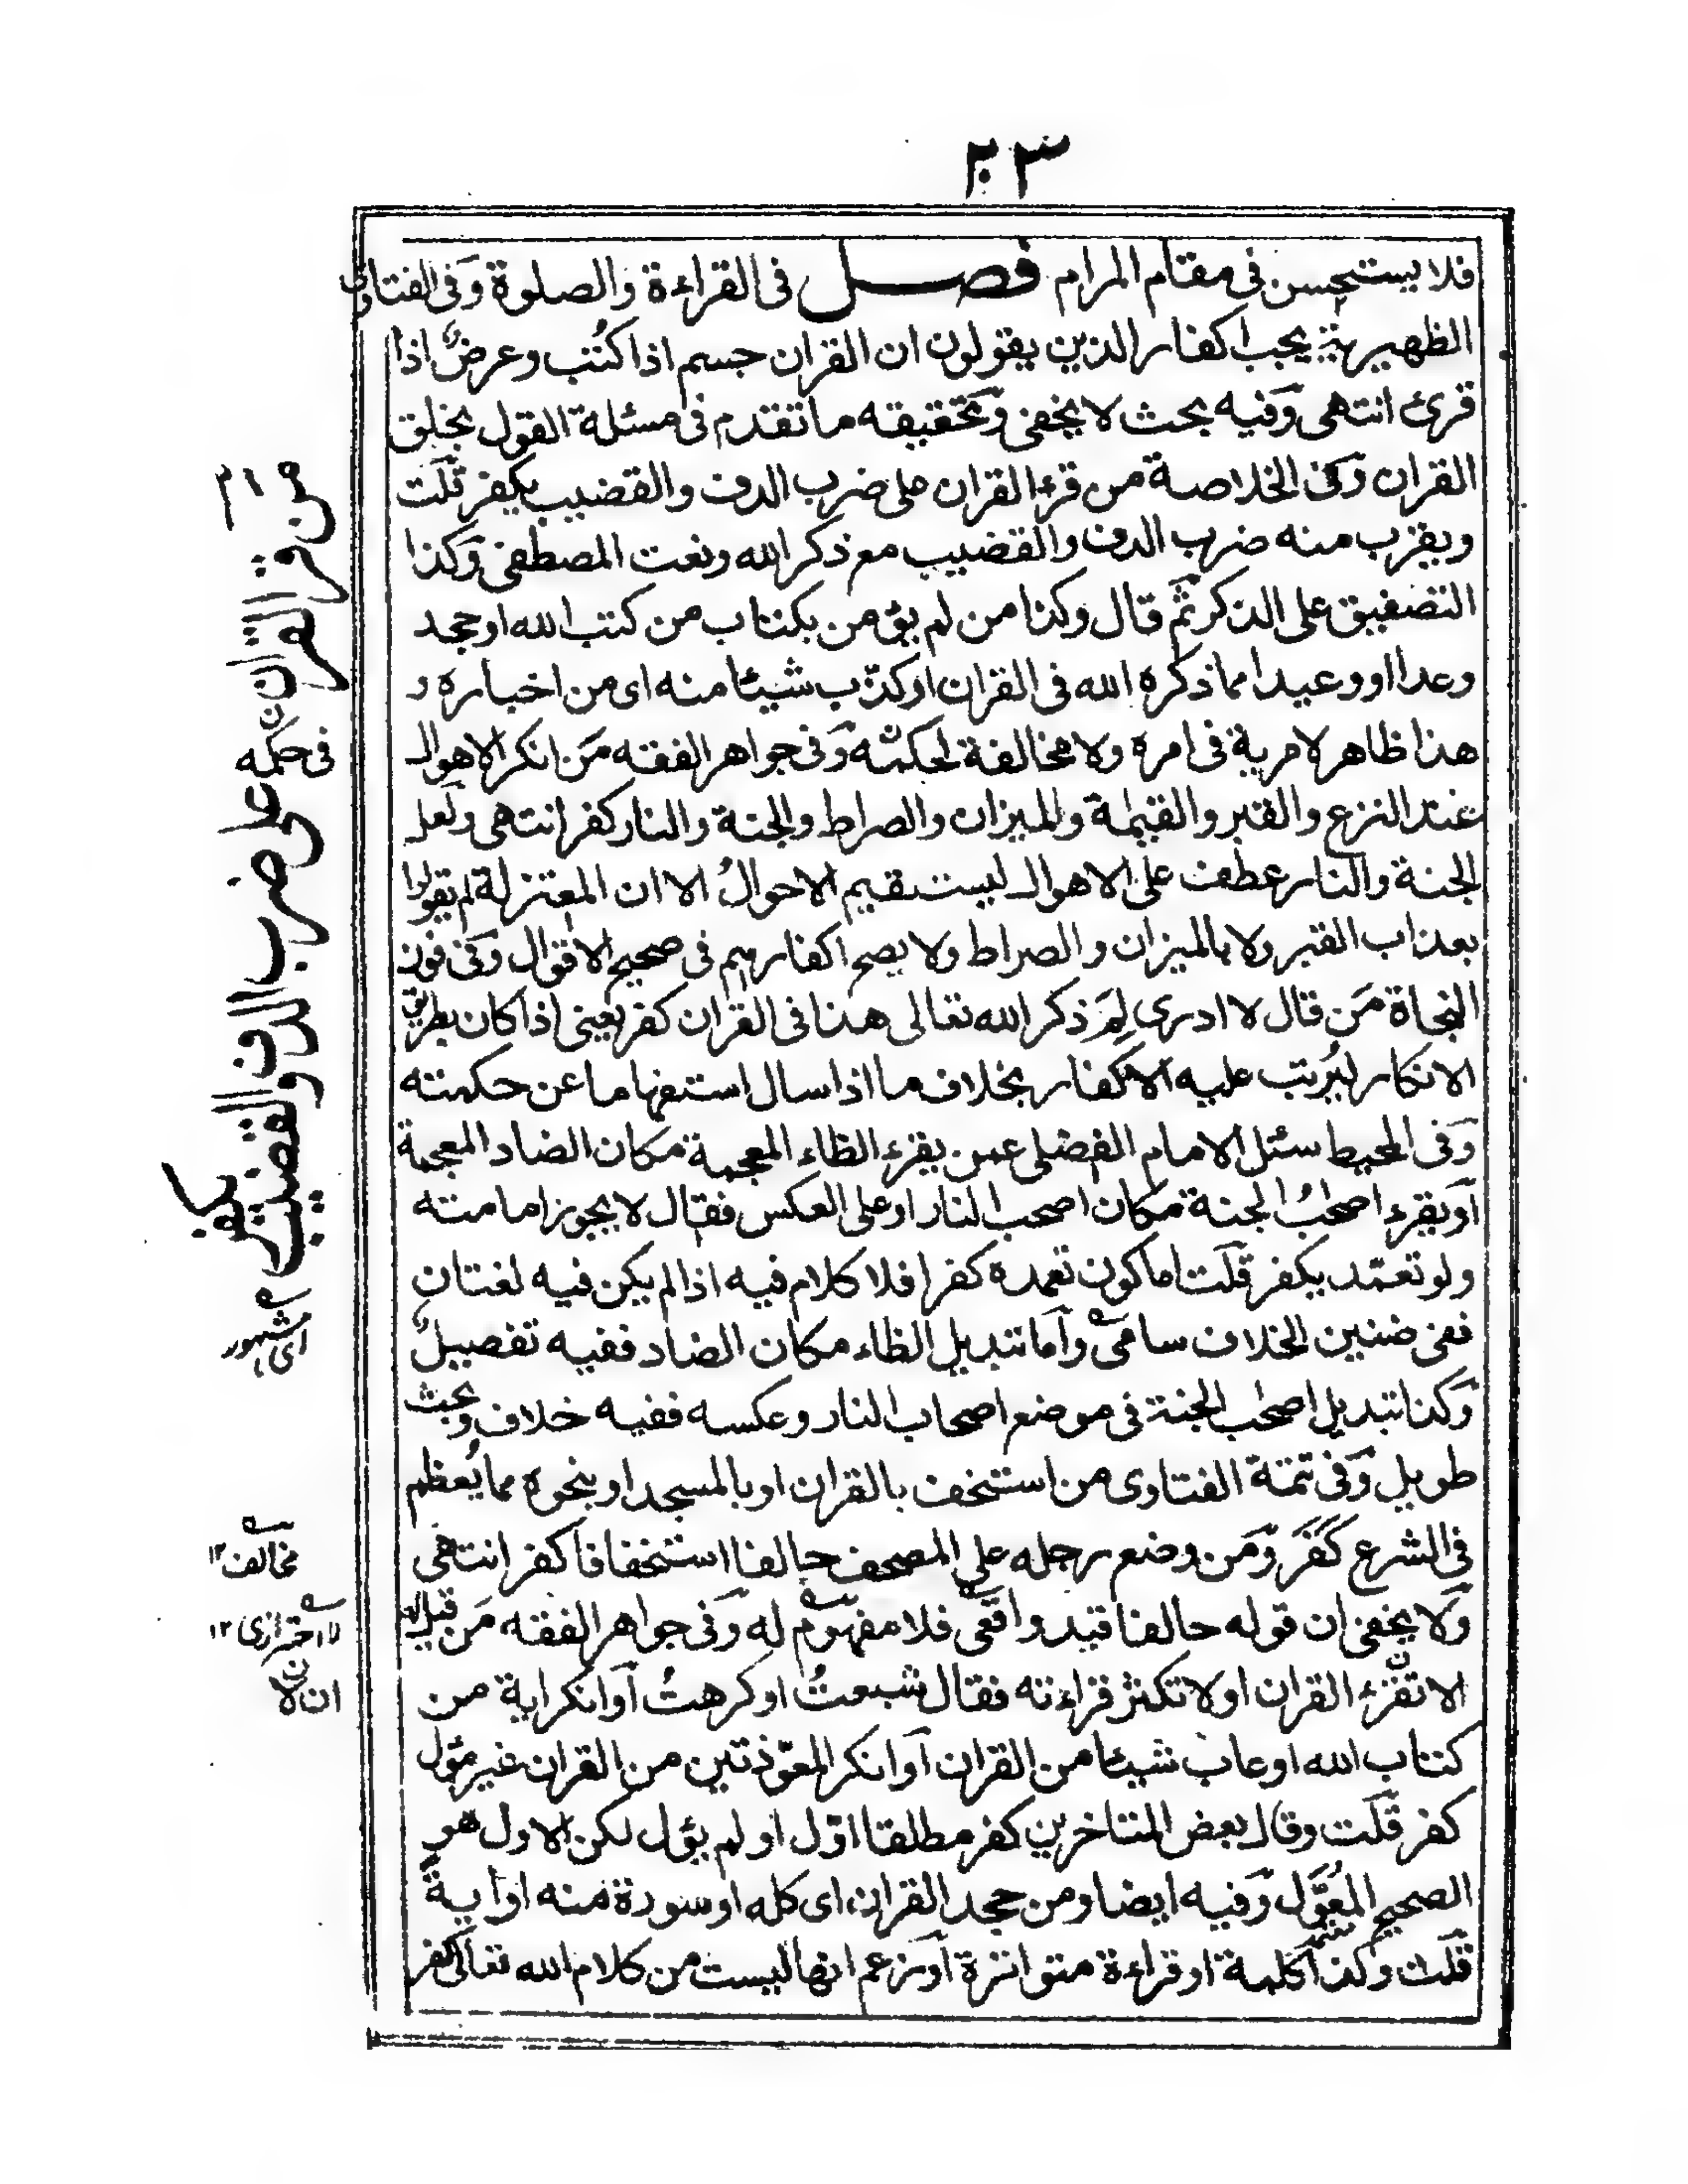 ٢٣
فلا يستحسن فى مقام المرام فصل فى القراءة والصلوة وفى الفتاوى
الظهيرية يجب اكفار الذين يقولون ان القران جسم اذا كُتب وعرض اذا
قرئ انتهى وفيه بحث لا يخفى وتحقيقه ما تقدم فى مسئلة القول بخلق
القران وفى الخلاصة من قرء القران على ضرب الدف والقضيب يكفر قلت
ويقرب منه ضرب الدف والقضيب مع ذكر الله ونعت المصطفى وكذا
التصفيق على الذكر ثم قال وكذا من لم يؤمن بكتاب من كتب الله او جحد
وعدا او وعيدا مما ذكره الله فى القران او كذّب شيئا منه اى من اخباره و
هذا ظاهر لا مرية فى امره ولا مخالفة لحكمه وفى جواهر الفقه من انكر الاهوال
عند النزع والقبر والقيٰمة والميزان والصراط والجنة والنار كفر انتهى ولعل
الجنة والنار عطف على الاهوال ليستقيم الاحوالُ الا ان المعتزلة لم يقولوا
بعذاب القبر ولا بالميزان والصراط ولا يصح اكفارهم فى صحيح الاقوال وفى فوز
النجاة من قال لا ادرى لِمَ ذكر الله تعالى هذا فى القران كفر يعنى اذا كان بطريق
الانكار ليُرتب عليه الاكفار بخلاف ما اذا سال استفهاما عن حكمته
وفى المحيط سئل الامام الفضلى عمن يقرء الظاء المعجمة مكان الضاد المعجمة
او يقرء اصحٰبُ الجنة مكان اصحب النار او على العكس فقال لا يجوز امامته
ولو تعمّد يكفر قلت اما كون تعمده كفرا فلا كلام فيه اذا لم يكن فيه لغتان
ففى ضنين الخلاف سامى واما تبديل الظاء مكان الضاد ففيه تفصيل
وكذا تبديل اصحٰب الجنة فى موضع اصحاب النار وعكسه ففيه خلاف وبحث
طويل وفى تتمة الفتاوى من استخف بالقران او بالمسجد او بنحوه مما يُعظم
فى الشرع كَفَرَ ومن وضع رجله على المصحف حالفا استخفافا كفر انتهى
ولا يخفى ان قوله حالفا قيد واقعى فلا مفهوم له وفى جواهر الفقه من قيل له
الا تقرء القران او لا تكثر قراءته فقال شبعتُ او كرهتُ او انكر اية من
كتاب الله او عاب شيئا من القران او انكر المعوّذتين من القران غير مئول
كفر قلت وقال بعض المتاخرين كفر مطلقا اوّل او لم يؤل لكن الاول هو
الصحيح المُعوّل وفيه ايضا ومن جحد القران اى كله او سورة منه او ايةً
قلت وكذا كلمة او قراءة متواترة او زعم انها ليست من كلام الله تعالى كفر
من قرء القران
فى حكمه
على ضرب الدف والقضيب
يكفر
اى مشهور
مخالف ١٢
لا احترازى ١٢